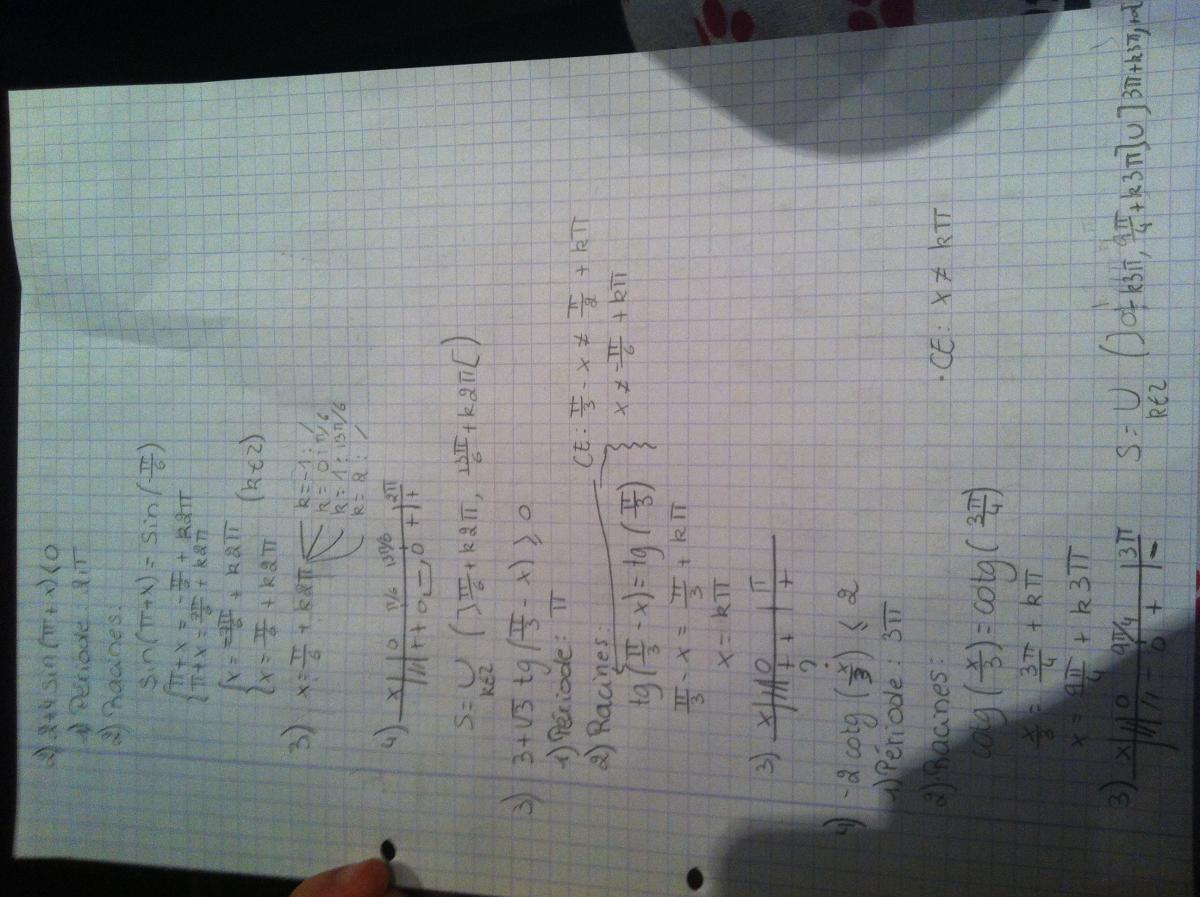 2) 2+4 sin(π+x) < 0
1) Période : 2π
2) Racines :
sin(π+x) = sin(-π/6)
{ π+x = -π/6 + k2π
{ π+x = 7π/6 + k2π
{ x = -7π/6 + k2π
{ x = π/6 + k2π (k∈Z)
3) x = π/6 + k2π
k=-1 : /
k=0 : π/6
k=1 : 13π/6
k=2 : /
4) x | 0 π/6 13π/6 | 2π
/// | + + 0 - 0 + | +
S = ∪ ( ]π/6 + k2π, 13π/6 + k2π[ )
k∈Z
3) 3+√3 tg(π/3 - x) ≥ 0
1) Période : π
2) Racines :
CE : π/3 - x ≠ π/2 + kπ
x ≠ -π/6 + kπ
tg(π/3 - x) = tg(π/3)
π/3 - x = π/3 + kπ
x = kπ
3) x | 0 | π
/// | + + | +
?
4) -2 cotg(x/3) ≤ 2
1) Période : 3π
2) Racines :
· CE : x ≠ kπ
cotg(x/3) = cotg(3π/4)
x/3 = 3π/4 + kπ
x = 9π/4 + k3π
3) x | 0 9π/4 | 3π
/// | // - 0 + | -
S = ∪ ( ]0+k3π, 9π/4 + k3π] ∪ ]3π+k3π,
k∈Z